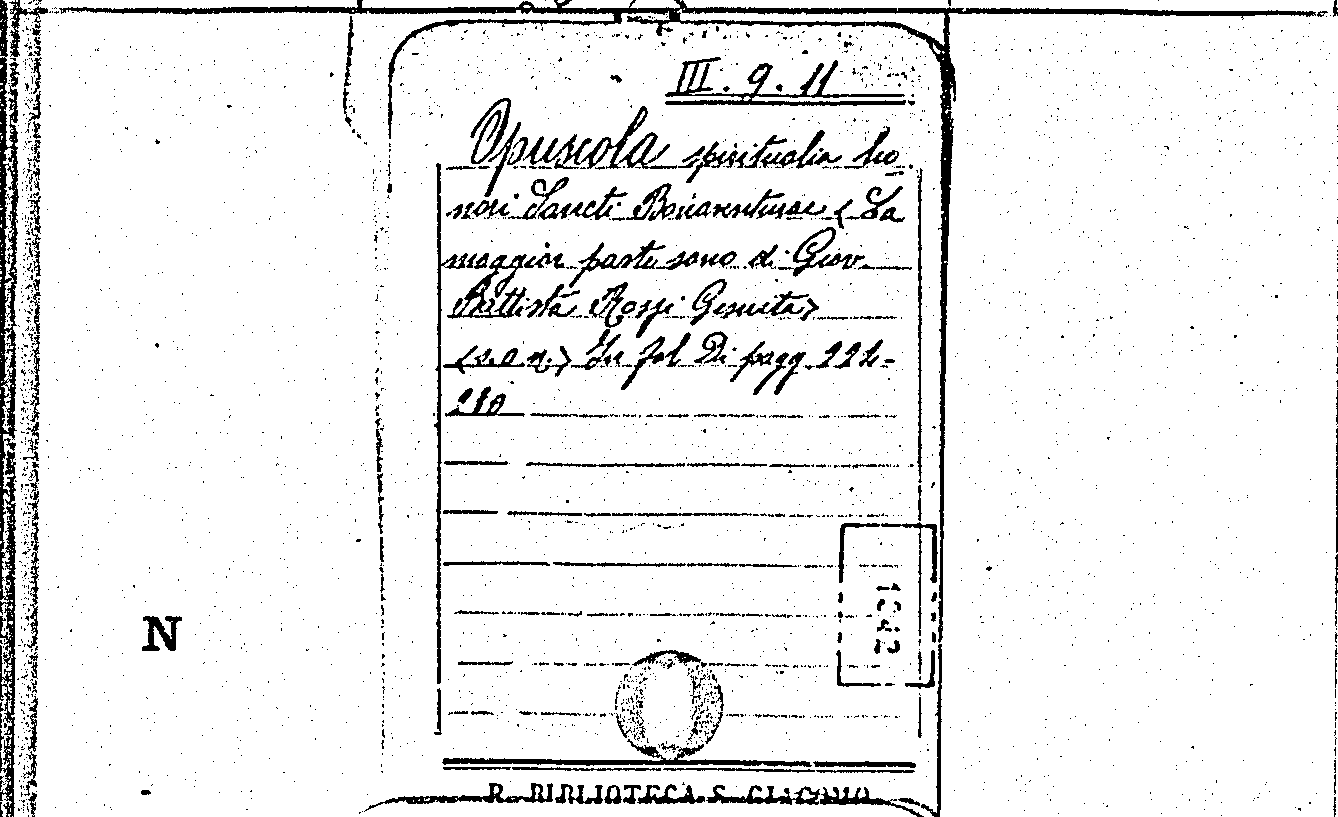 III. 9. 11
Opuscola spiritualia ho
nori Sancti Bonaventurae (La
maggior parte sono di Giov.
Battista Rossi Gesuita)
(s. a. n.) In fol Di pagg. 224-
280
1342
N
R. BIBLIOTECA S. GIACOMO